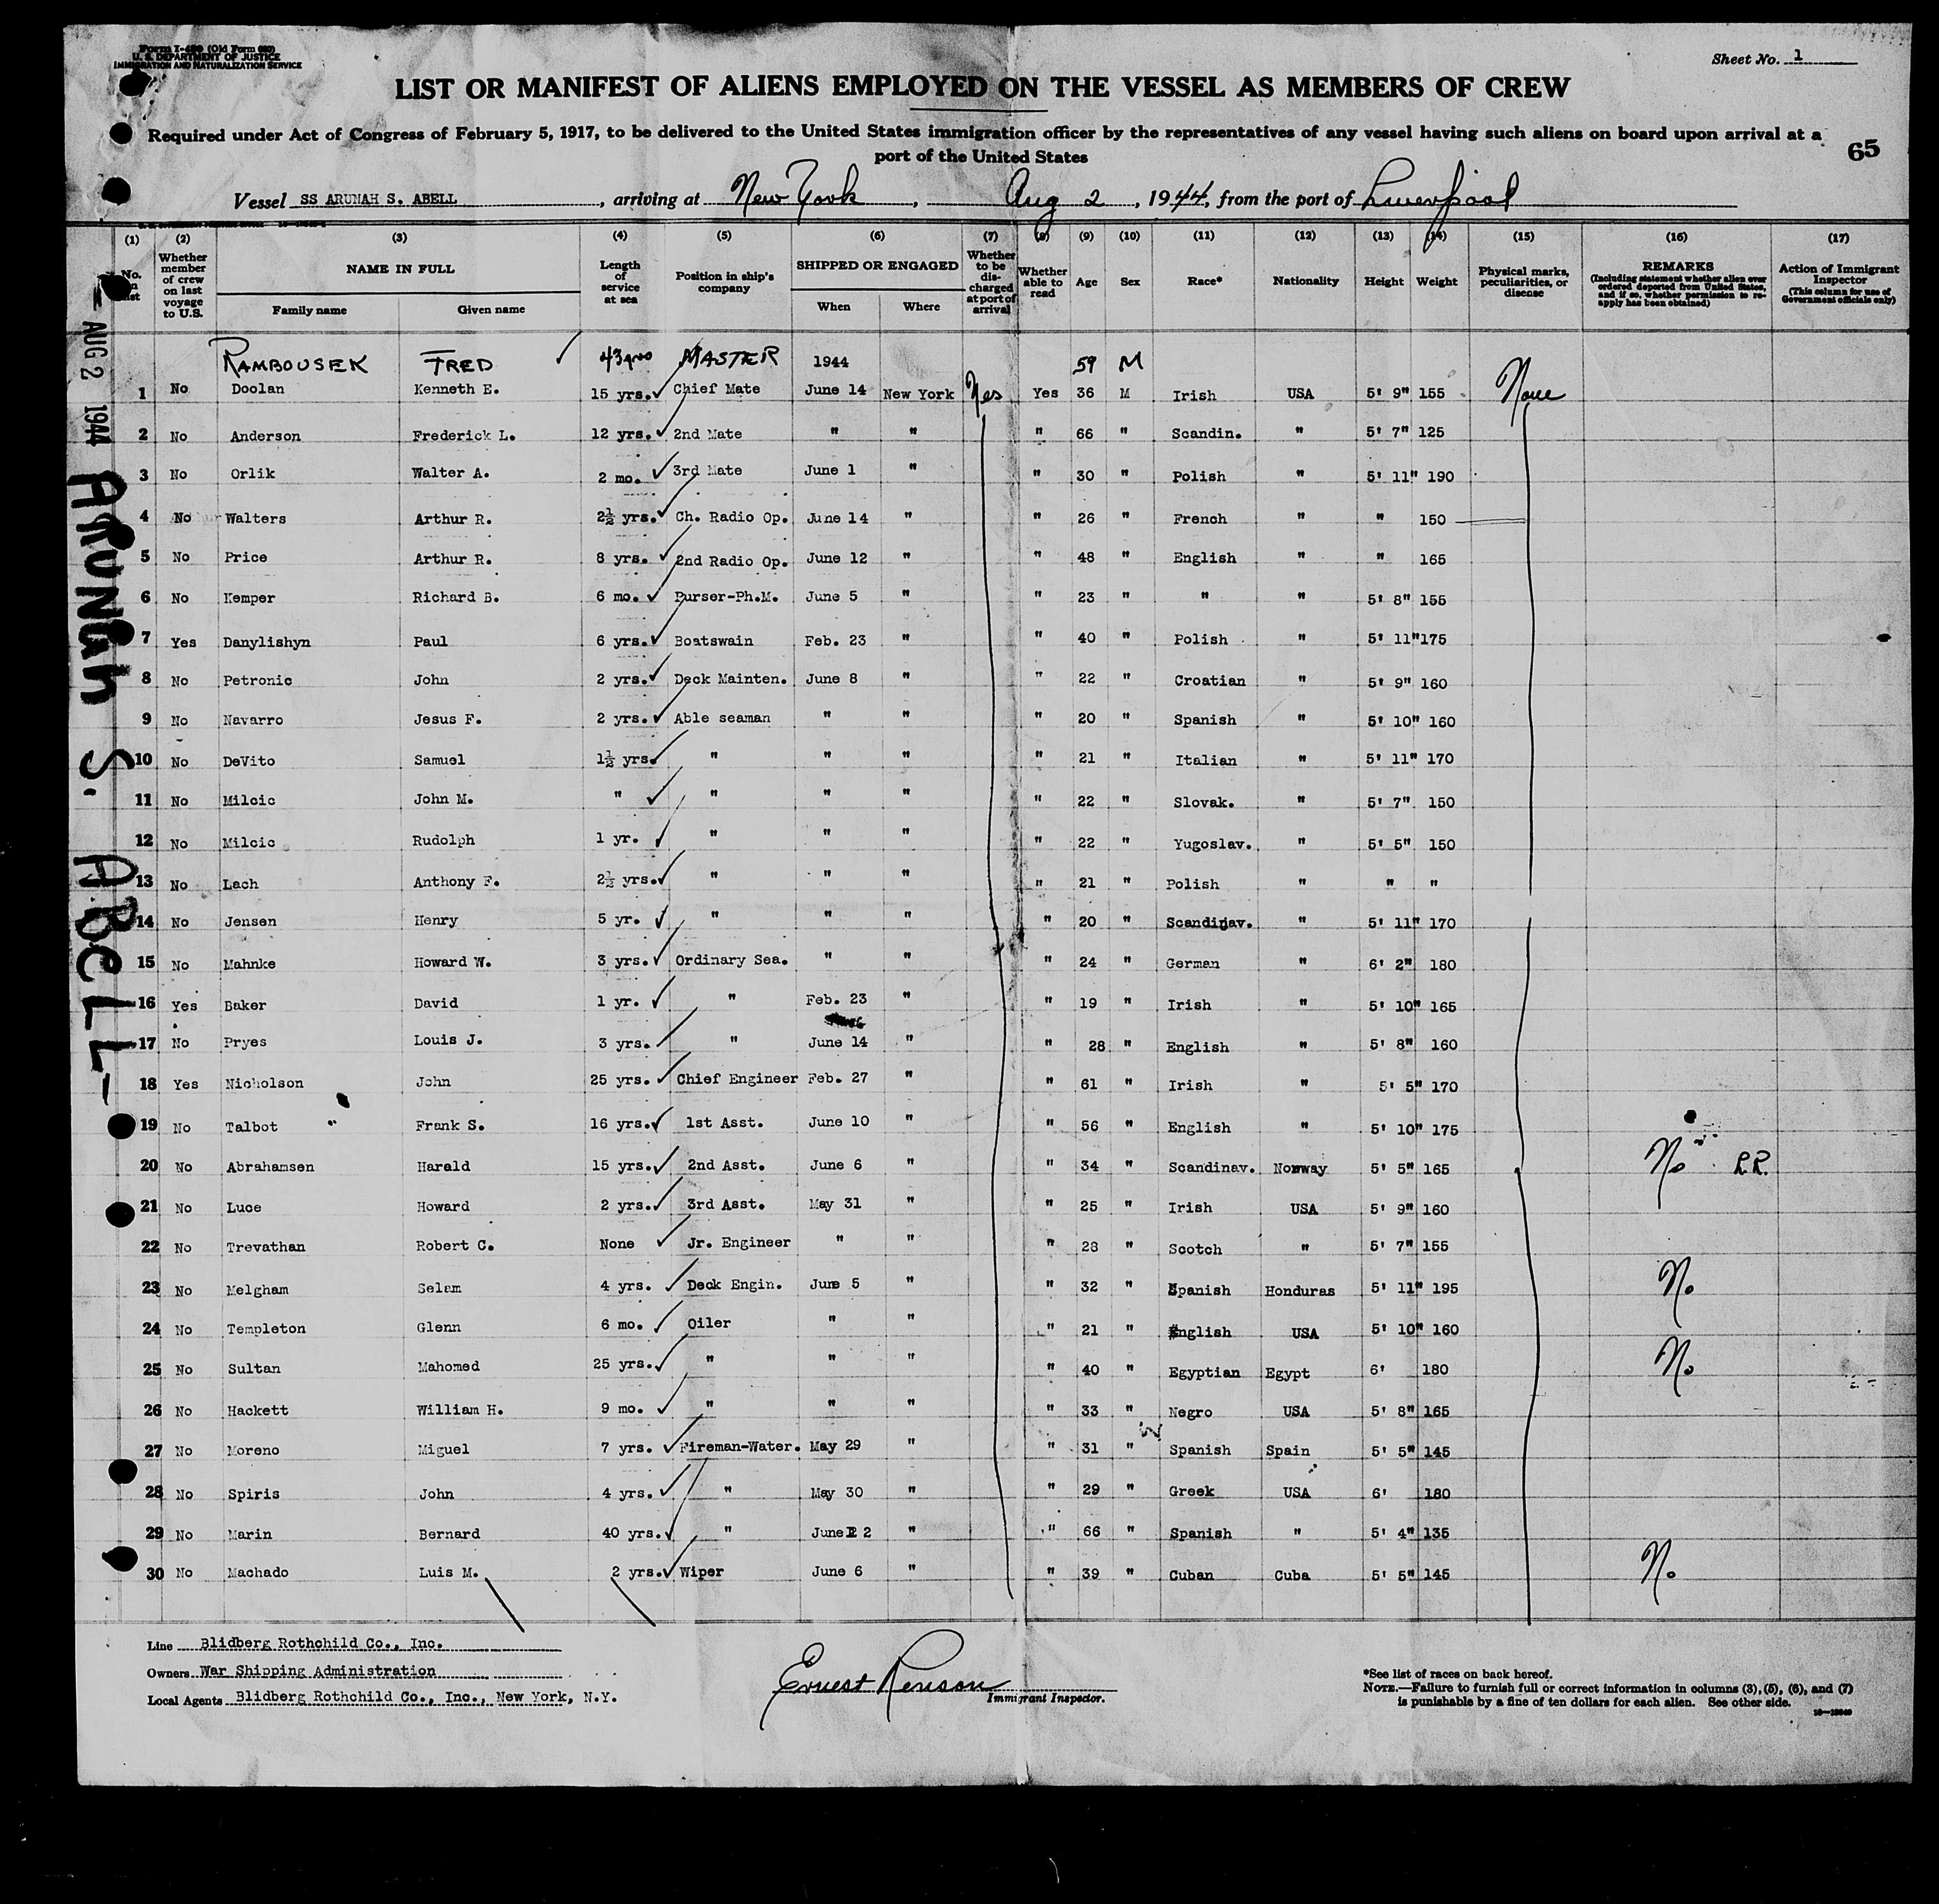 Form I-489 (Old Form 689)
U. S. DEPARTMENT OF JUSTICE
IMMIGRATION AND NATURALIZATION SERVICE
Sheet No. 1
LIST OR MANIFEST OF ALIENS EMPLOYED ON THE VESSEL AS MEMBERS OF CREW
Required under Act of Congress of February 5, 1917, to be delivered to the United States immigration officer by the representatives of any vessel having such aliens on board upon arrival at a
port of the United States
65
Vessel SS ARUNAH S. ABELL, arriving at New York, Aug 2, 1944, from the port of Liverpool
(1) (2) (3) (4) (5) (6) (7) (8) (9) (10) (11) (12) (13) (14) (15) (16) (17)
No. on list
Whether member of crew on last voyage to U.S.
NAME IN FULL
Family name Given name
Length of service at sea
Position in ship's company
SHIPPED OR ENGAGED
When Where
Whether to be discharged at port of arrival
Whether able to read
Age Sex Race* Nationality Height Weight
Physical marks, peculiarities, or disease
REMARKS
(Including statement whether alien ever ordered deported from United States, and if so, whether permission to reapply has been obtained)
Action of Immigrant Inspector
(This column for use of Government officials only)
AUG 2 1944
ARUNAH S. ABELL
RAMBOUSEK FRED MASTER 1944 59 M
1 No Doolan Kenneth E. 15 yrs. Chief Mate June 14 New York Yes Yes 36 M Irish USA 5' 9" 155 None
2 No Anderson Frederick L. 12 yrs. 2nd Mate " " " 66 " Scandin. " 5' 7" 125
3 No Orlik Walter A. 2 mo. 3rd Mate June 1 " " 30 " Polish " 5' 11" 190
4 No Walters Arthur R. 2½ yrs. Ch. Radio Op. June 14 " " 26 " French " " 150
5 No Price Arthur R. 8 yrs. 2nd Radio Op. June 12 " " 48 " English " " 165
6 No Kemper Richard B. 6 mo. Purser-Ph.M. June 5 " " 23 " " " 5' 8" 155
7 Yes Danylishyn Paul 6 yrs. Boatswain Feb. 23 " " 40 " Polish " 5' 11" 175
8 No Petronic John 2 yrs. Deck Mainten. June 8 " " 22 " Croatian " 5' 9" 160
9 No Navarro Jesus F. 2 yrs. Able seaman " " " 20 " Spanish " 5' 10" 160
10 No DeVito Samuel 1½ yrs. " " " " 21 " Italian " 5' 11" 170
11 No Milcic John M. " " " " " 22 " Slovak. " 5' 7" 150
12 No Milcic Rudolph 1 yr. " " " " 22 " Yugoslav. " 5' 5" 150
13 No Lach Anthony F. 2½ yrs. " " " " 21 " Polish " " "
14 No Jensen Henry 5 yr. " " " " 20 " Scandinav. " 5' 11" 170
15 No Mahnke Howard W. 3 yrs. Ordinary Sea. " " " 24 " German " 6' 2" 180
16 Yes Baker David 1 yr. " Feb. 23 " " 19 " Irish " 5' 10" 165
17 No Pryes Louis J. 3 yrs. " June 14 " " 28 " English " 5' 8" 160
18 Yes Nicholson John 25 yrs. Chief Engineer Feb. 27 " " 61 " Irish " 5' 5" 170
19 No Talbot Frank S. 16 yrs. 1st Asst. June 10 " " 56 " English " 5' 10" 175
20 No Abrahamsen Harald 15 yrs. 2nd Asst. June 6 " " 34 " Scandinav. Norway 5' 5" 165 No R.R.
21 No Luce Howard 2 yrs. 3rd Asst. May 31 " " 25 " Irish USA 5' 9" 160
22 No Trevathan Robert C. None Jr. Engineer " " " 28 " Scotch " 5' 7" 155
23 No Melgham Selam 4 yrs. Deck Engin. June 5 " " 32 " Spanish Honduras 5' 11" 195 No
24 No Templeton Glenn 6 mo. Oiler " " " 21 " English USA 5' 10" 160
25 No Sultan Mahomed 25 yrs. " " " " 40 " Egyptian Egypt 6' 180 No
26 No Hackett William H. 9 mo. " " " " 33 " Negro USA 5' 8" 165
27 No Moreno Miguel 7 yrs. Fireman-Water. May 29 " " 31 " Spanish Spain 5' 5" 145
28 No Spiris John 4 yrs. " May 30 " " 29 " Greek USA 6' 180
29 No Marin Bernard 40 yrs. " June 2 " " 66 " Spanish " 5' 4" 135
30 No Machado Luis M. 2 yrs. Wiper June 6 " " 39 " Cuban Cuba 5' 5" 145 No
Line Blidberg Rothchild Co., Inc.
Owners War Shipping Administration
Local Agents Blidberg Rothchild Co., Inc., New York, N.Y.
Ernest Renson
Immigrant Inspector.
*See list of races on back hereof.
NOTE.—Failure to furnish full or correct information in columns (3), (5), (6), and (7)
is punishable by a fine of ten dollars for each alien. See other side.